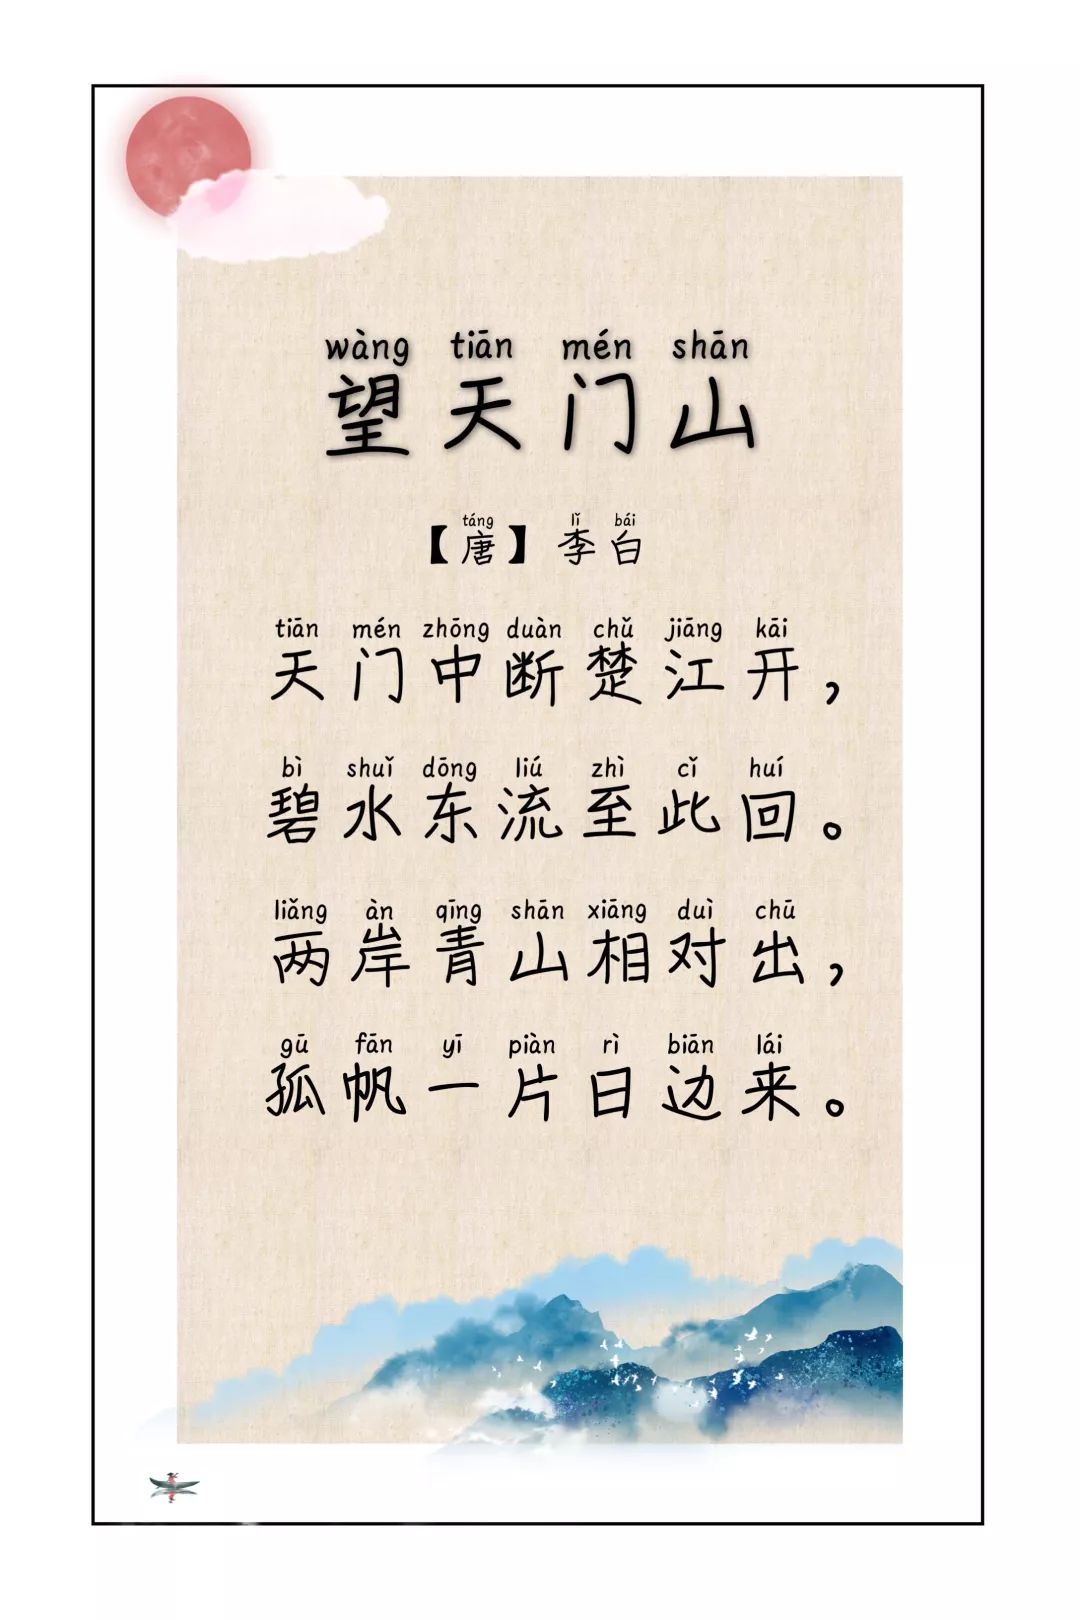 wàng tiān mén shān
望天门山
táng lǐ bái
【唐】李白
tiān mén zhōng duàn chǔ jiāng kāi
天门中断楚江开，
bì shuǐ dōng liú zhì cǐ huí
碧水东流至此回。
liǎng àn qīng shān xiāng duì chū
两岸青山相对出，
gū fān yī piàn rì biān lái
孤帆一片日边来。